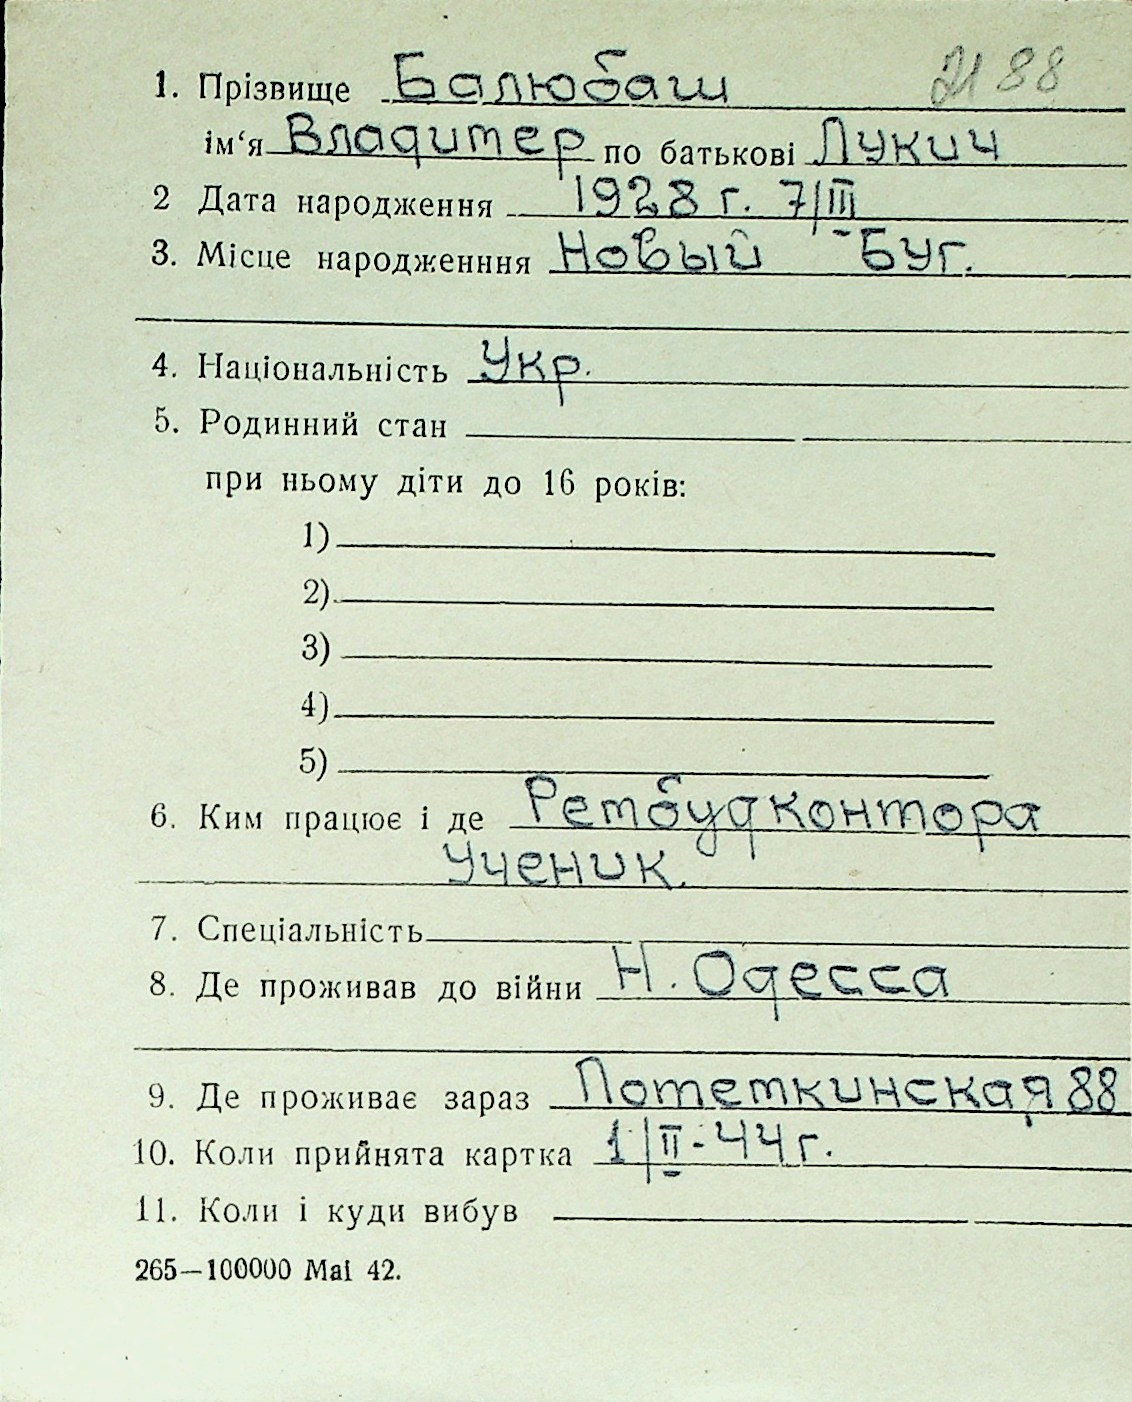 1. Прізвище Балюбаш 2188
ім‘я Владимер по батькові Лукич
2 Дата народження 1928 г. 7/III
3. Місце народженння Новый Буг.
4. Національність Укр.
5. Родинний стан
при ньому діти до 16 років:
1)
2)
3)
4)
5)
6. Ким працює і де Рембудконтора
Ученик.
7. Спеціальність
8. Де проживав до війни Н. Одесса
9. Де проживає зараз Потемкинская 88
10. Коли прийнята картка 1/II-44 г.
11. Коли і куди вибув
265—100000 Mai 42.